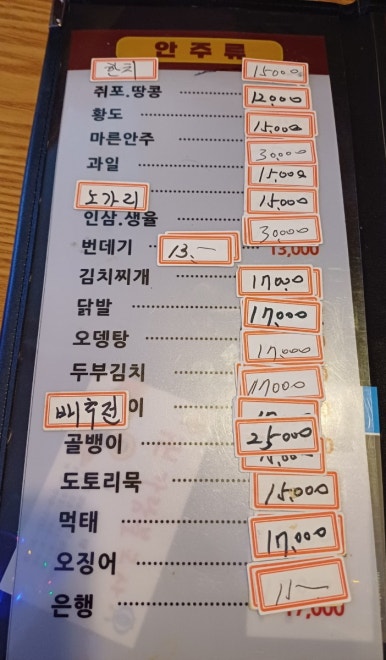 안주류
한치 15000
쥐포.땅콩 12,000
황도 15,000
마른안주 30,000
과일 15,000
노가리 15,000
인삼.생율 30,000
번데기 13.— 13,000
김치찌개 17000
닭발 17,000
오뎅탕 17,000
두부김치 17000
배추전 이
골뱅이 25,000
도토리묵 15,000
먹태 17,000
오징어 11—
은행 17,000